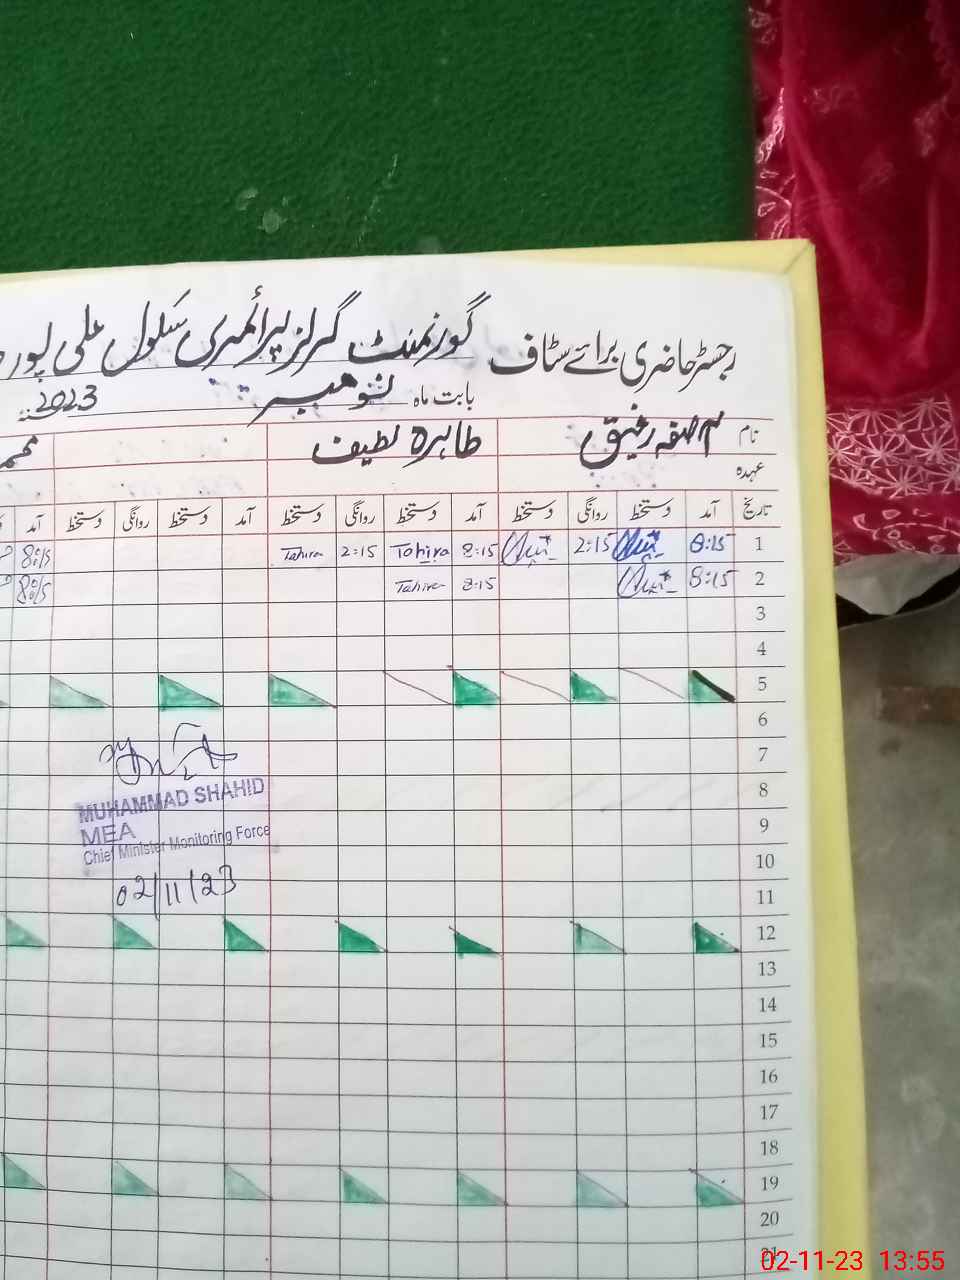 رجسٹر حاضری برائے سٹاف گورنمنٹ گرلز پرائمری سکول علی پور
بابت ماہ نومبر 2023
نام آصفہ رفیق طاہرہ لطیف
عہدہ
تاریخ آمد دستخط روانگی دستخط آمد دستخط روانگی دستخط آمد دستخط روانگی دستخط آمد
1 8:15 2:15 8:15 Tahira 2:15 Tahira 8:15
2 8:15 8:15 Tahira 8:15
3
4
5
6
7
8
9
10
11
12
13
14
15
16
17
18
19
20
21
MUHAMMAD SHAHID
MEA
Chief Minister Monitoring Force
02/11/23
02-11-23 13:55